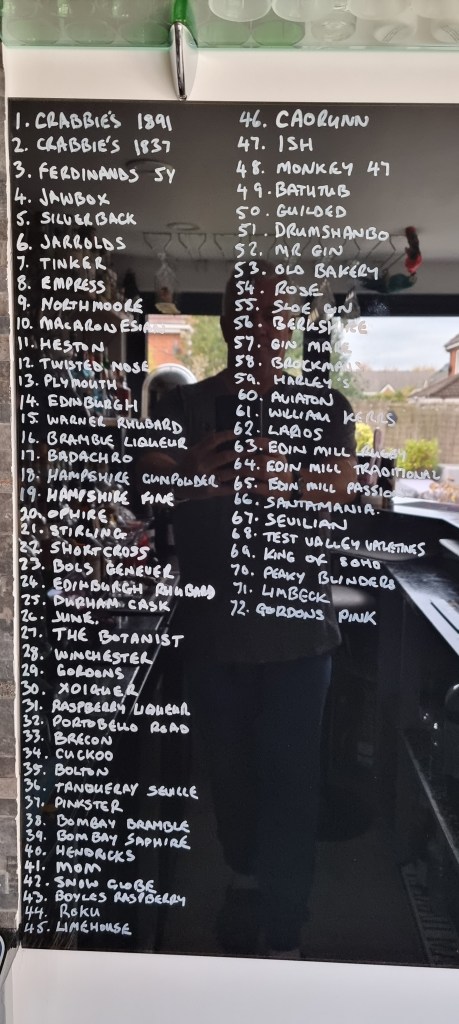 1. CRABBIE'S 1891
2. CRABBIE'S 1837
3. FERDINANDS SY
4. JAWBOX
5. SILVERBACK
6. JARROLDS
7. TINKER
8. EMPRESS
9. NORTHMOORE
10. MACARONESIAN
11. HESTON
12 TWISTED NOSE
13. PLYMOUTH
14. EDINBURGH
15. WARNER RHUBARD
16. BRAMBLE LIQUEUR
17. BADACHRO
18. HAMPSHIRE GUNPOLDER
19. HAMPSHIRE FINE
20. OPHIRE
21. STIRLING
22. SHORTCROSS
23. BOLS GENEVER
24. EDINBURGH RHUBARD
25. DURHAM CASK
26. JUNE.
27. THE BOTANIST
28. WINCHESTER
29. GORDONS
30. XOIQUER
31. RASPBERRY LIQUEUR
32. PORTOBELLO ROAD
33. BRECON
34. CUCKOO
35. BOLTON
36. TANQUERAY SEVILLE
37. PINKSTER
38. BOMBAY BRAMBLE
39. BOMBAY SAPHIRE
40. HENDRICKS
41. MOM
42. SNOW GLOBE
43. BOYLES RASPBERRY
44. ROKU
45. LIMEHOUSE
46. CAORUNN
47. ISH
48. MONKEY 47
49. BATHTUB
50. GUILDED
51. DRUMSHANBO
52. MR GIN
53. OLD BAKERY
54. ROSE
55. SLOE GIN
56. BERKSHIRE
57. GIN MARE
58. BROCKMANS
59. HARLEY'S
60. AVIATON
61. WILLIAM KERRS
62. LARIOS
63. EDIN MILL RUGBY
64. EDIN MILL TRADITIONAL
65. EDIN MILL PASSION
66. SANTAMANIA.
67. SEVILIAN
68. TEST VALLEY VALETINES
69. KING OF SOHO
70. PEAKY BLINDERS
71. LIMBECK
72. GORDONS PINK